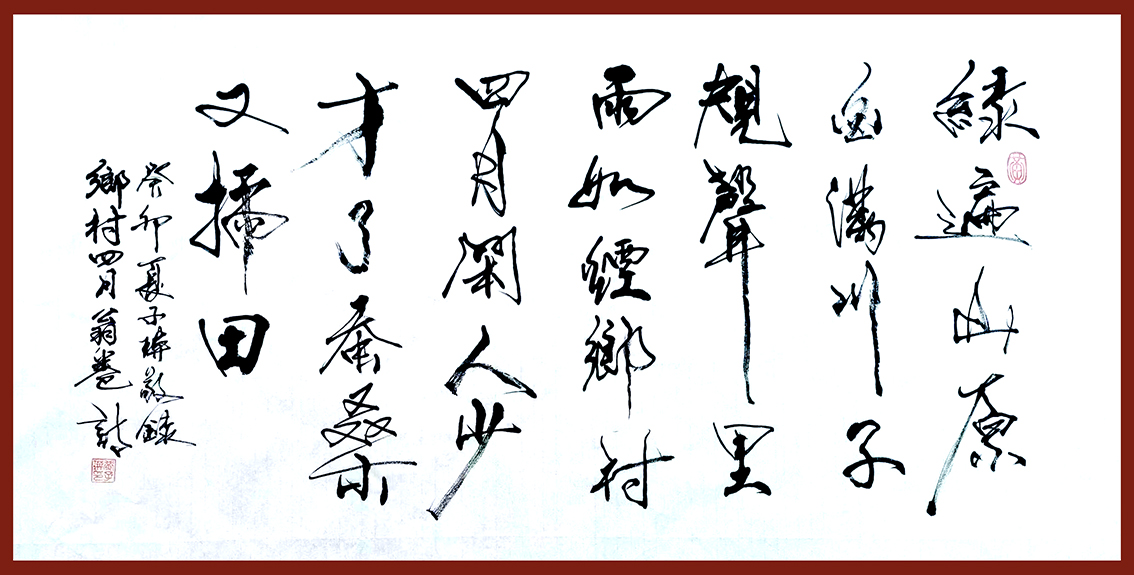 綠遍山原
白滿川子
規聲里
雨如煙鄉村
四月閑人少
才了蚕桑
又插田
癸卯夏子敬錄
鄉村四月翁卷詩